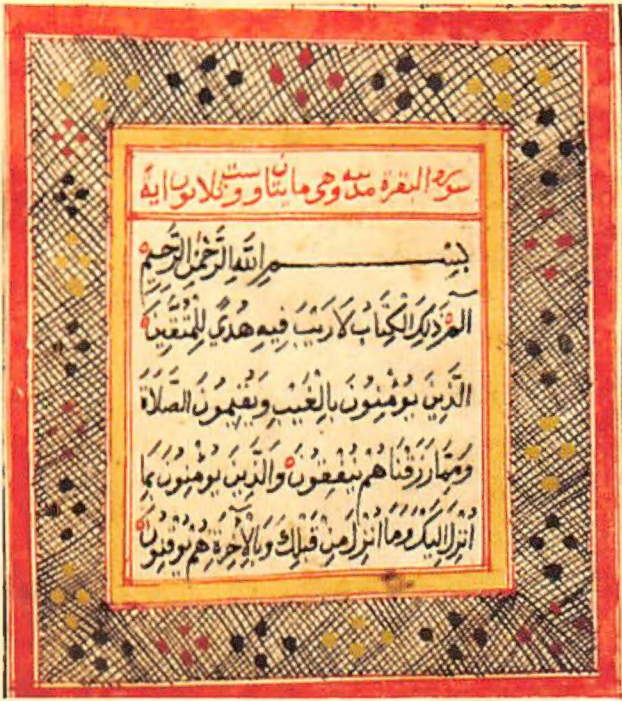 سورة البقرة مدنيه وهى مايتان و وست ثلاثون اية
بِسْمِ اللَّهِ الرَّحْمٰنِ الرَّحِيمِ
الٓمٓ ذٰلِكَ الْكِتَابُ لَا رَيْبَ فِيهِ هُدًى لِلْمُتَّقِينَ
الَّذِينَ يُؤْمِنُونَ بِالْغَيْبِ وَيُقِيمُونَ الصَّلَاةَ
وَمِمَّا رَزَقْنَا هُمْ يُنْفِقُونَ وَالَّذِينَ يُؤْمِنُونَ بِمَا
اُنْزِلَ اِلَيْكَ وَمَا اُنْزِلَ مِنْ قَبْلِكَ وَبِالْاٰخِرَةِ هُمْ يُوقِنُونَ